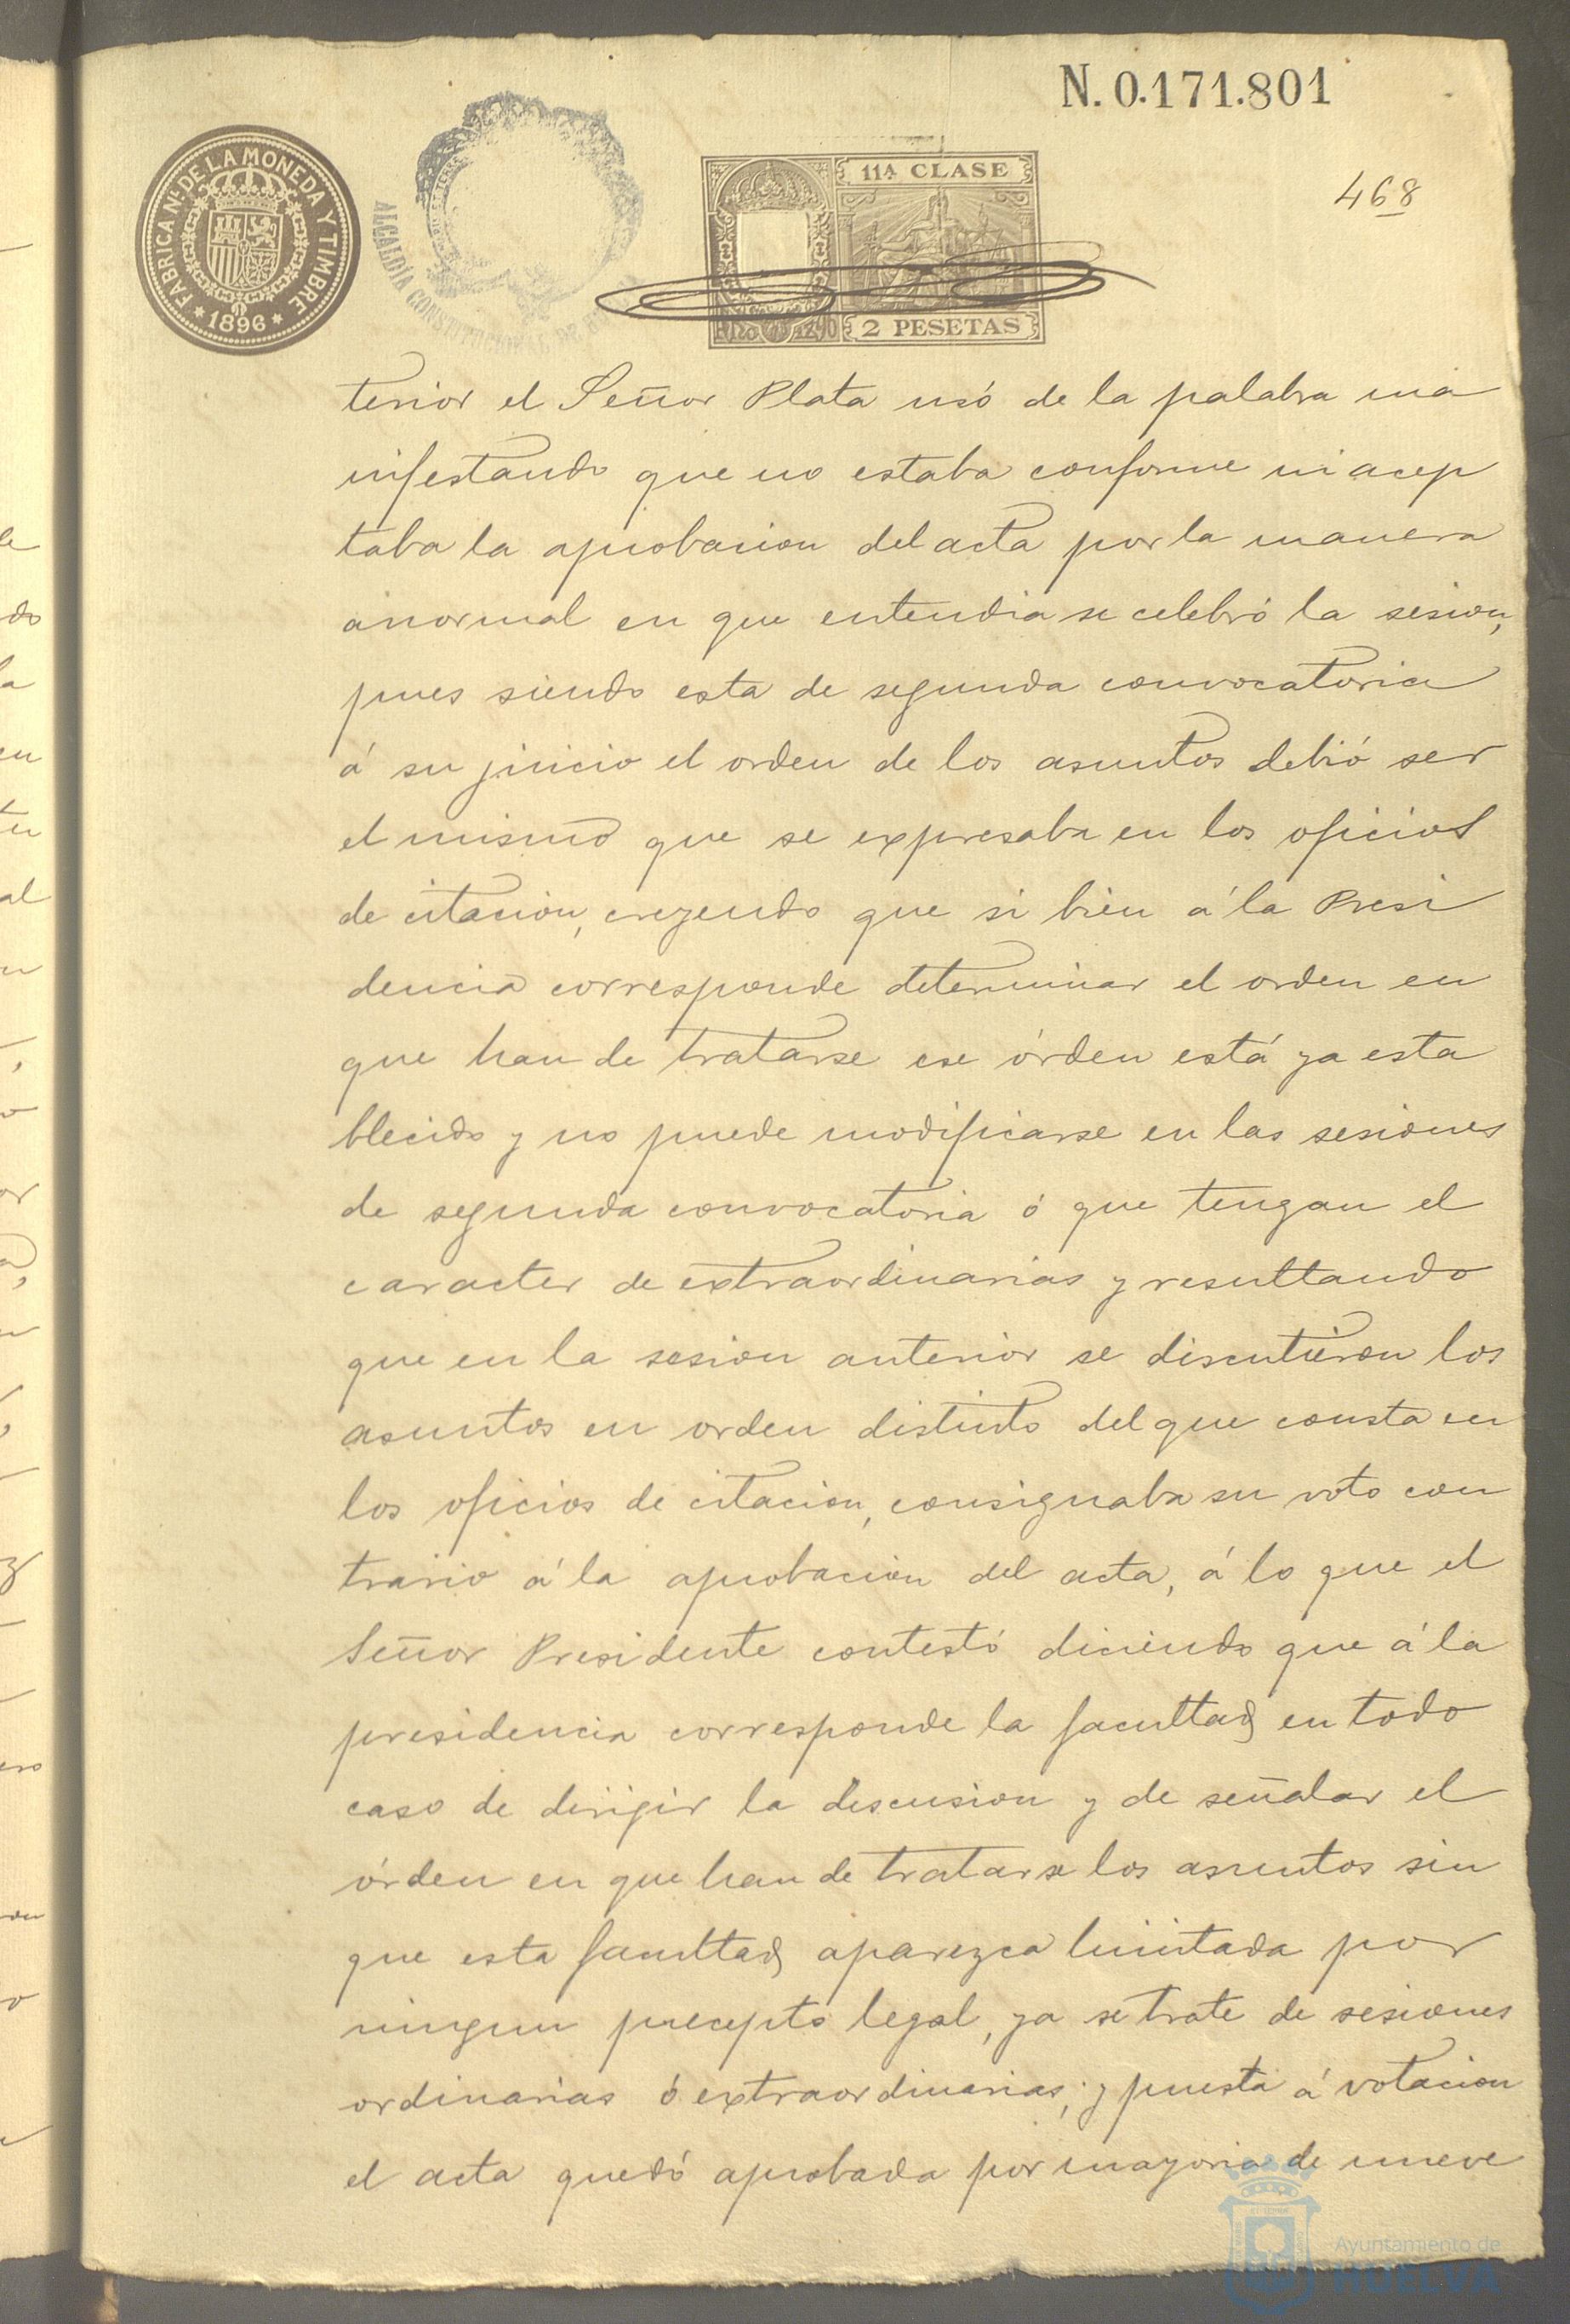 N. 0.171.801
468
FABRICA Nˡ DE LA MONEDA Y TIMBRE
* 1896 *
ALCALDÍA CONSTITUCIONAL DE
11ª CLASE
2 PESETAS
terior el Señor Plata usó de la palabra ma
nifestando que no estaba conforme ni acep
taba la aprobacion del acta por la manera
anormal en que entendia se celebró la sesion,
pues siendo esta de segunda convocatoria
á su juicio el orden de los asuntos debió ser
el mismo que se expresaba en los oficios
de citacion, creyendo que si bien á la Presi
dencia corresponde determinar el orden en
que han de tratarse ese órden está ya esta
blecido y no puede modificarse en las sesiones
de segunda convocatoria ó que tengan el
caracter de extraordinarias y resultando
que en la sesion anterior se discutieron los
asuntos en orden distinto del que consta en
los oficios de citacion, consignaba su voto con
trario á la aprobacion del acta, á lo que el
Señor Presidente contestó diciendo que á la
presidencia corresponde la facultad en todo
caso de dirigir la discusion y de señalar el
órden en que han de tratarse los asuntos sin
que esta facultad aparezca limitada por
ningun precepto legal, ya se trate de sesiones
ordinarias ó extraordinarias; y puesta á votacion
el acta quedó aprobada por mayoria de nueve
Ayuntamiento de
HUELVA